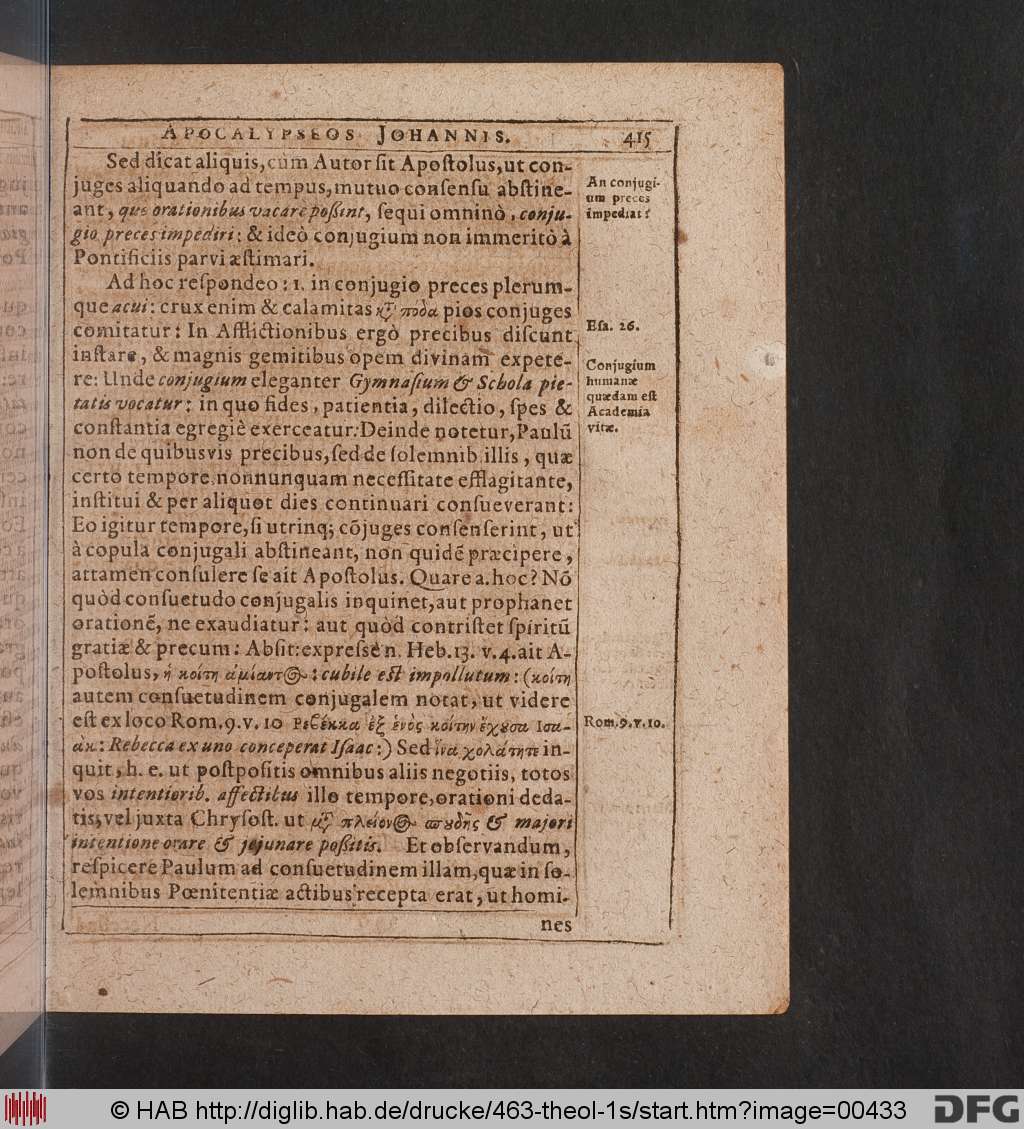 APOCALYPSEOS JOHANNIS. 415
Sed dicat aliquis, cùm Autor ſit Apoſtolus, ut con-
juges aliquando ad tempus, mutuo conſenſu abſtine-
ant, quo orationibus vacare poßint, ſequi omninò, conju-
gio preces impediri: & ideò conjugium non immeritò à
Pontificiis parvi æſtimari.
An conjugi-
um preces
impediat?
Ad hoc reſpondeo: 1. in conjugio preces plerum-
que acui: crux enim & calamitas κỳ πόδα pios conjuges
comitatur: In Afflictionibus ergò precibus diſcunt
inſtare, & magnis gemitibus opem divinam expete-
re: Unde conjugium eleganter Gymnaſium & Schola pie-
tatis vocatur: in quo fides, patientia, dilectio, ſpes &
conſtantia egregiè exerceatur: Deinde notetur, Paulū
non de quibusvis precibus, ſed de ſolemnib illis, quæ
certo tempore nonnunquam neceſſitate efflagitante,
inſtitui & per aliquot dies continuari conſueverant:
Eo igitur tempore, ſi utrinq; cōjuges conſenſerint, ut
à copula conjugali abſtineant, non quidē præcipere,
attamen conſulere ſe ait Apoſtolus. Quare a. hoc? Nō
quòd conſuetudo conjugalis inquinet, aut prophanet
orationē, ne exaudiatur: aut quòd contriſtet ſpiritū
gratiæ & precum: Abſit: expreſsè n. Heb. 13. v. 4. ait A-
poſtolus, ἡ κοίτη ἀμίαντ@: cubile eſt impollutum: (κοίτη
autem conſuetudinem conjugalem notat, ut videre
eſt ex loco Rom. 9. v. 10 Ρεβέκκα ἐξ ἑνὸς κοίτην ἔχȣσα Ισα-
ὰκ: Rebecca ex uno conceperat Iſaac:) Sed ἵνα χολάτητε in-
quit, h. e. ut poſtpoſitis omnibus aliis negotiis, totos
vos intentiorib. affectibus illo tempore, orationi deda-
tis, vel juxta Chryſoſt. ut μỳ πλείον@ ϖȣδῆς & majori
intentione orare & jejunare poßitis. Et obſervandum,
reſpicere Paulum ad conſuetudinem illam, quæ in ſo-
lemnibus Pœnitentiæ actibus recepta erat, ut homi-
nes
Eſa. 26.
Conjugium
humanæ
quædam eſt
Academia
vitæ.
Rom. 9. v. 10.
© HAB http://diglib.hab.de/drucke/463-theol-1s/start.htm?image=00433
DFG